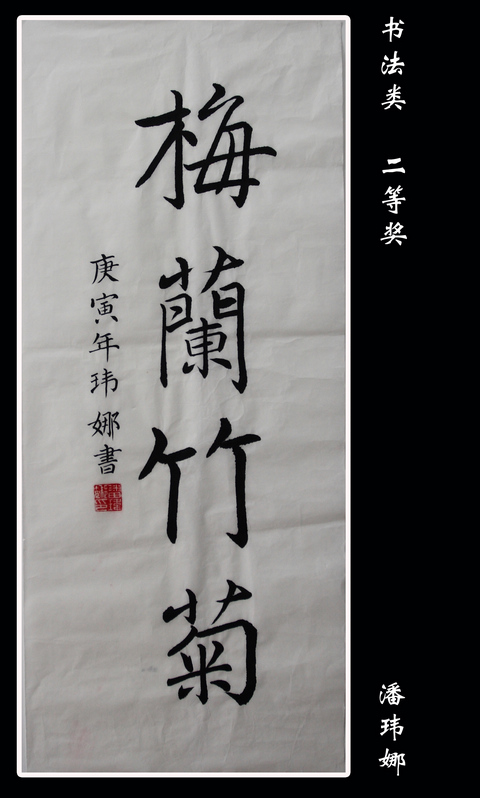 书法类 二等奖
潘玮娜
梅蘭竹菊
庚寅年玮娜書